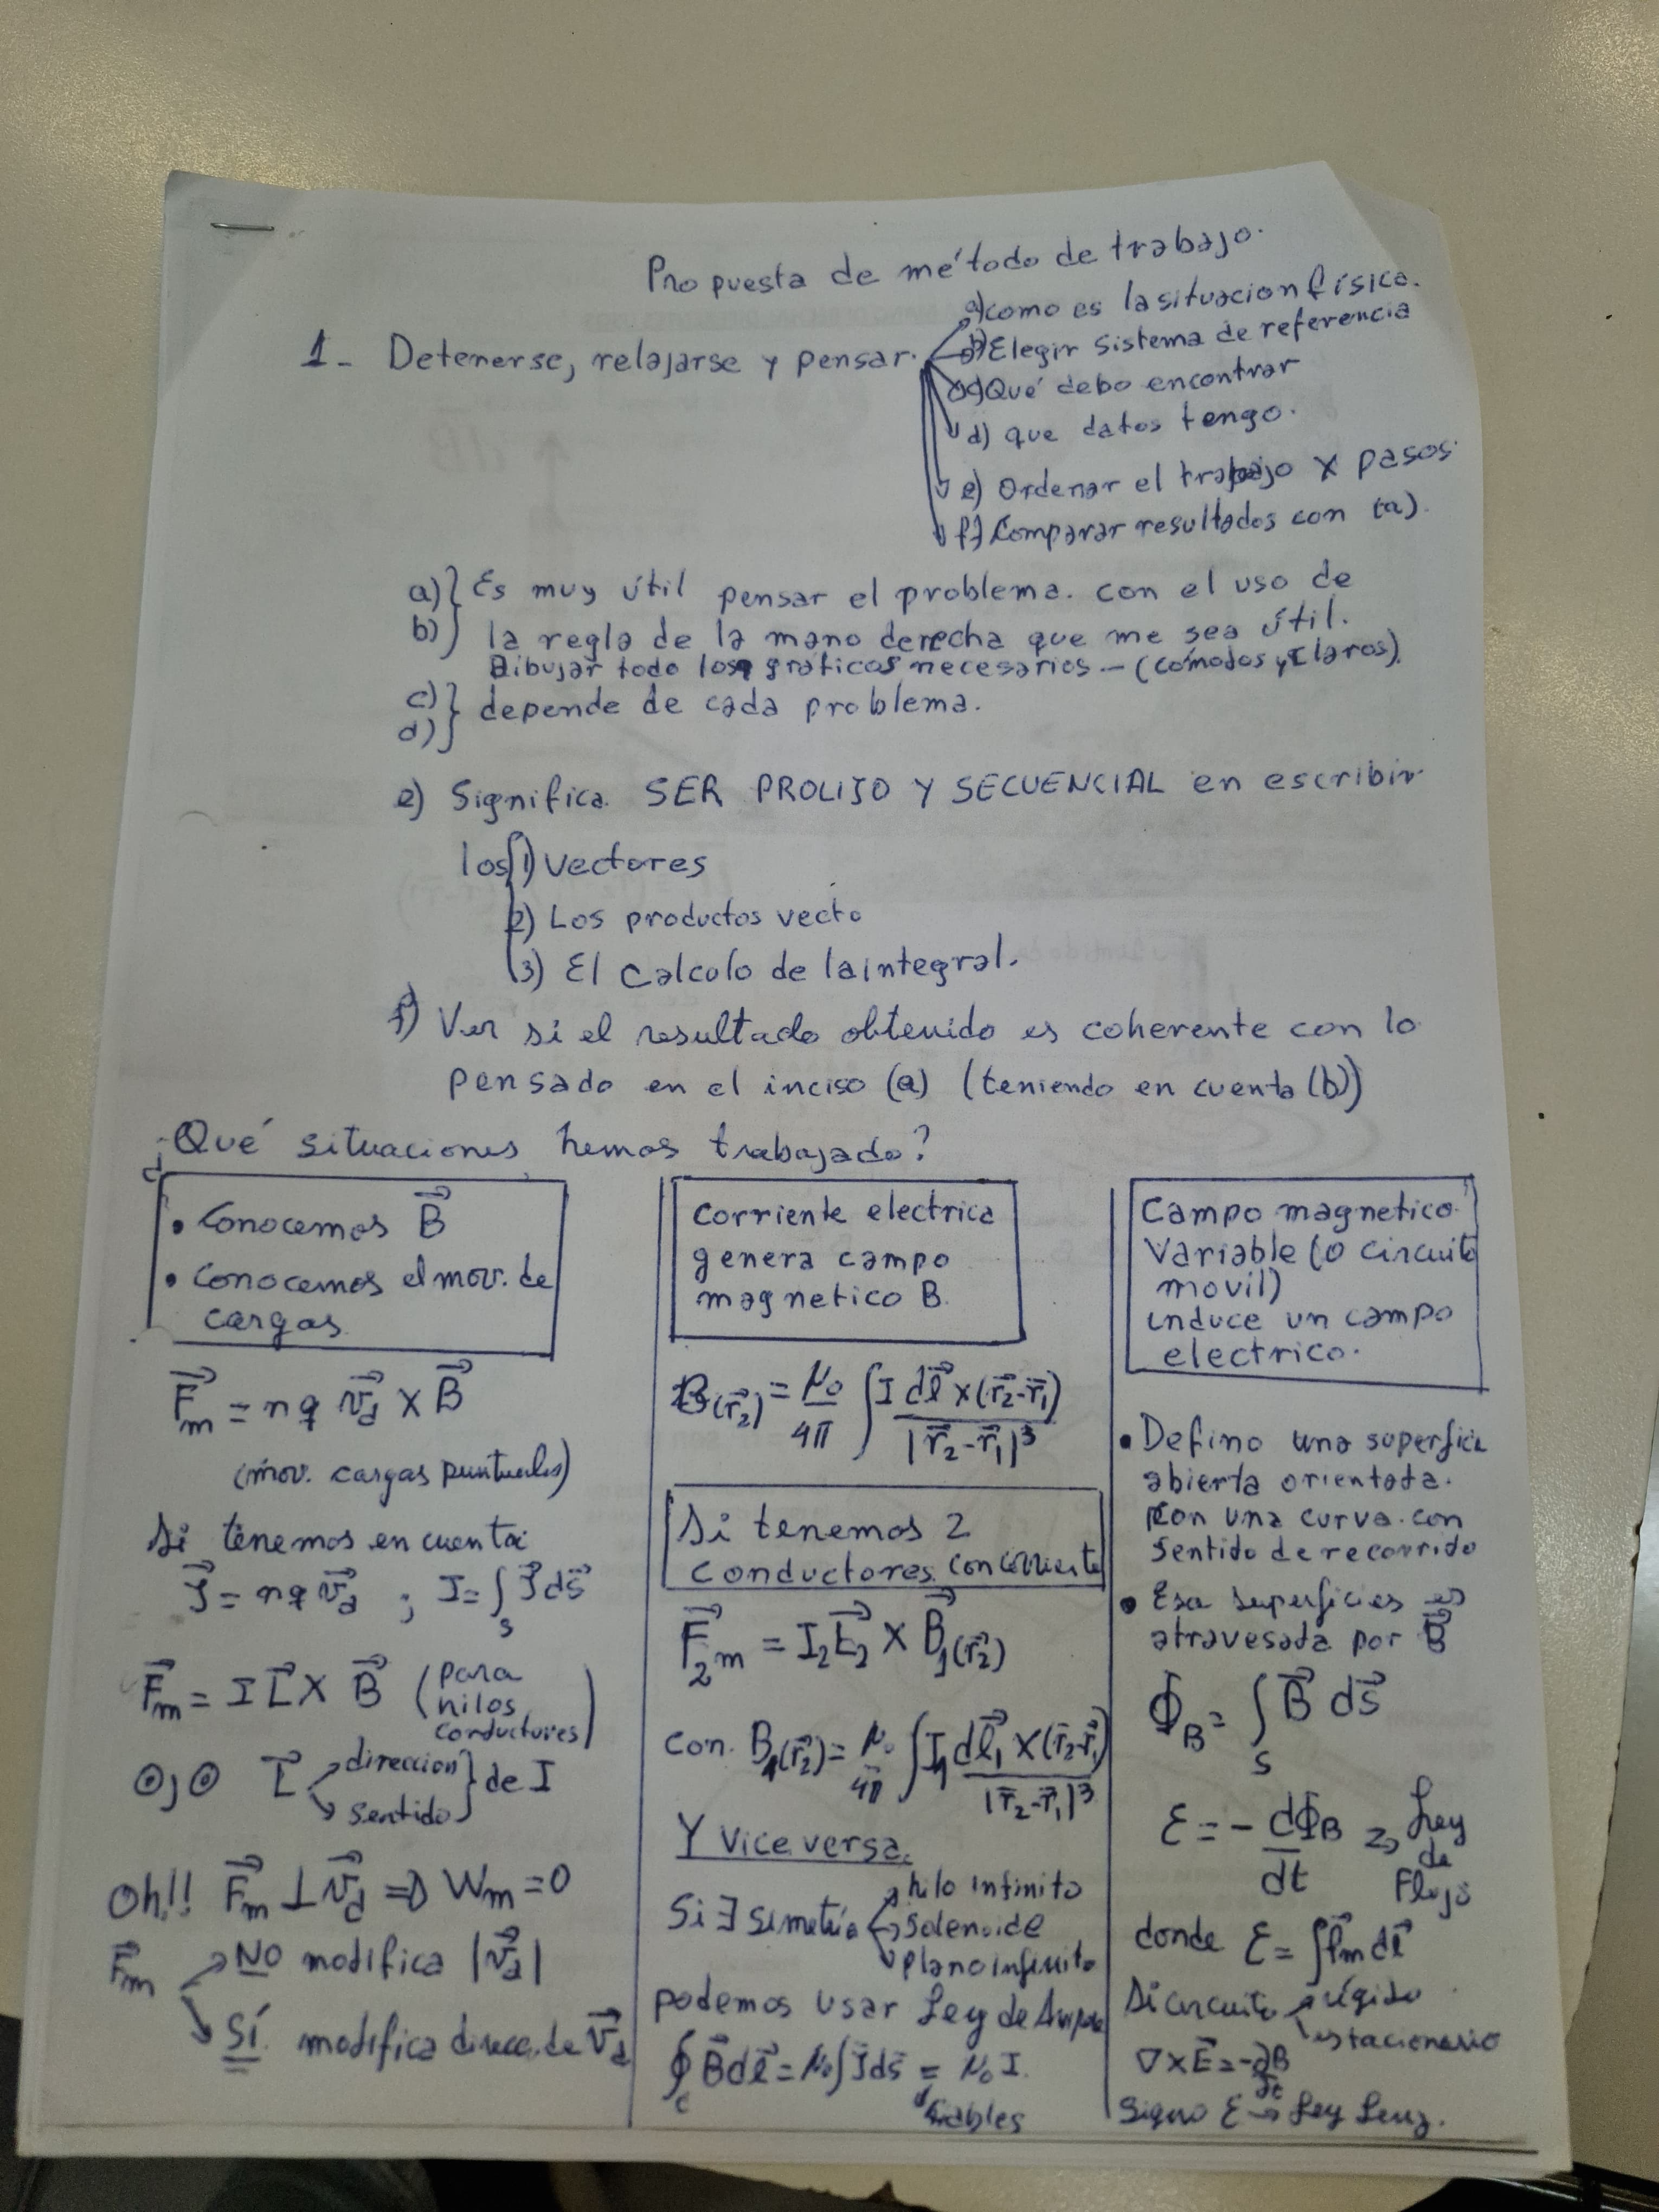 Propuesta de método de trabajo.
1- Detenerse, relajarse y pensar.
a) como es la situacion física.
b) Elegir sistema de referencia
c) Qué debo encontrar
d) que datos tengo.
e) Ordenar el trabajo x pasos
f) Comparar resultados con (a).
a) b) } Es muy útil pensar el problema. con el uso de
la regla de la mano derecha que me sea útil.
Dibujar todo los gráficos necesarios - (cómodos y claros).
c) d) } depende de cada problema.
e) Significa SER PROLIJO Y SECUENCIAL en escribir
los 1) Vectores
2) Los productos vecto
3) El Calculo de la integral.
f) Ver si el resultado obtenido es coherente con lo
pensado en el inciso (a) (teniendo en cuenta (b))
¿Qué situaciones hemos trabajado?
• Conocemos B⃗
• Conocemos el mov. de
cargas
F⃗m = nq v⃗d × B⃗
(mov. cargas puntuales)
Si tenemos en cuenta
J⃗ = nq v⃗d ; I = ∫s J⃗ ds⃗
F⃗m = I L⃗ × B⃗ (para hilos conductores)
⊙j⊙ L⃗ dirección sentido } de I
Oh!! F⃗m ⊥ v⃗d ⇒ Wm = 0
F⃗m NO modifica |v⃗d|
SÍ modifica direcc. de v⃗d
Corriente electrica
genera campo
magnetico B.
B(r⃗2) = μ0/4π ∫ I dl⃗ × (r⃗2 - r⃗1) / |r⃗2 - r⃗1|³
Si tenemos 2
conductores con corriente
F⃗2m = I2 L⃗2 × B⃗1(r⃗2)
con. B1(r⃗2) = μ0/4π ∫ I1 dl⃗1 × (r⃗2 - r⃗1) / |r⃗2 - r⃗1|³
Y Viceversa.
Si ∃ simetría
hilo infinito
Solenoide
plano infinito
podemos usar Ley de Ampere
∮c B⃗ dl⃗ = μ0 ∫ J⃗ ds⃗ = μ0 I.
Campo magnetico
Variable (o circuito
movil)
induce un campo
electrico.
• Defino una superficie
abierta orientada.
con una curva. con
sentido de recorrido
• Esa superficies es
atravesada por B⃗
ΦB = ∫s B⃗ ds⃗
ε = - dΦB/dt ⇒ Ley de Flujo
donde ε = ∫ f⃗m dl⃗
Si circuito rígido
estacionario
∇ × E⃗ = -∂B/∂t
Signo ε → Ley Lenz.